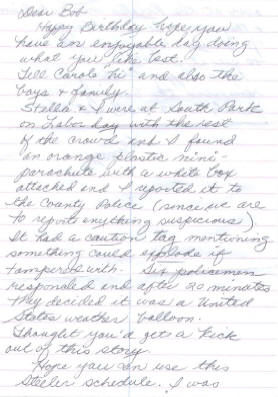 Dear Bob
Happy Birthday hope you
have an enjoyable day doing
what you like best.
Tell Carole "hi" and also the
boys & family.
Stella & I were at South Park
on Labor day with the rest
of the crowd and I found
an orange plastic mini-
parachute with a white box
attached and I reported it to
the County Police (since we are
to report anything suspicious)
It had a caution tag mentioning
something could explode if
tampered with. Six policemen
responded and after 20 minutes
they decided it was a United
States weather balloon.
Thought you'd get a kick
out of this story.
Hope you can use this
Steeler schedule. I was